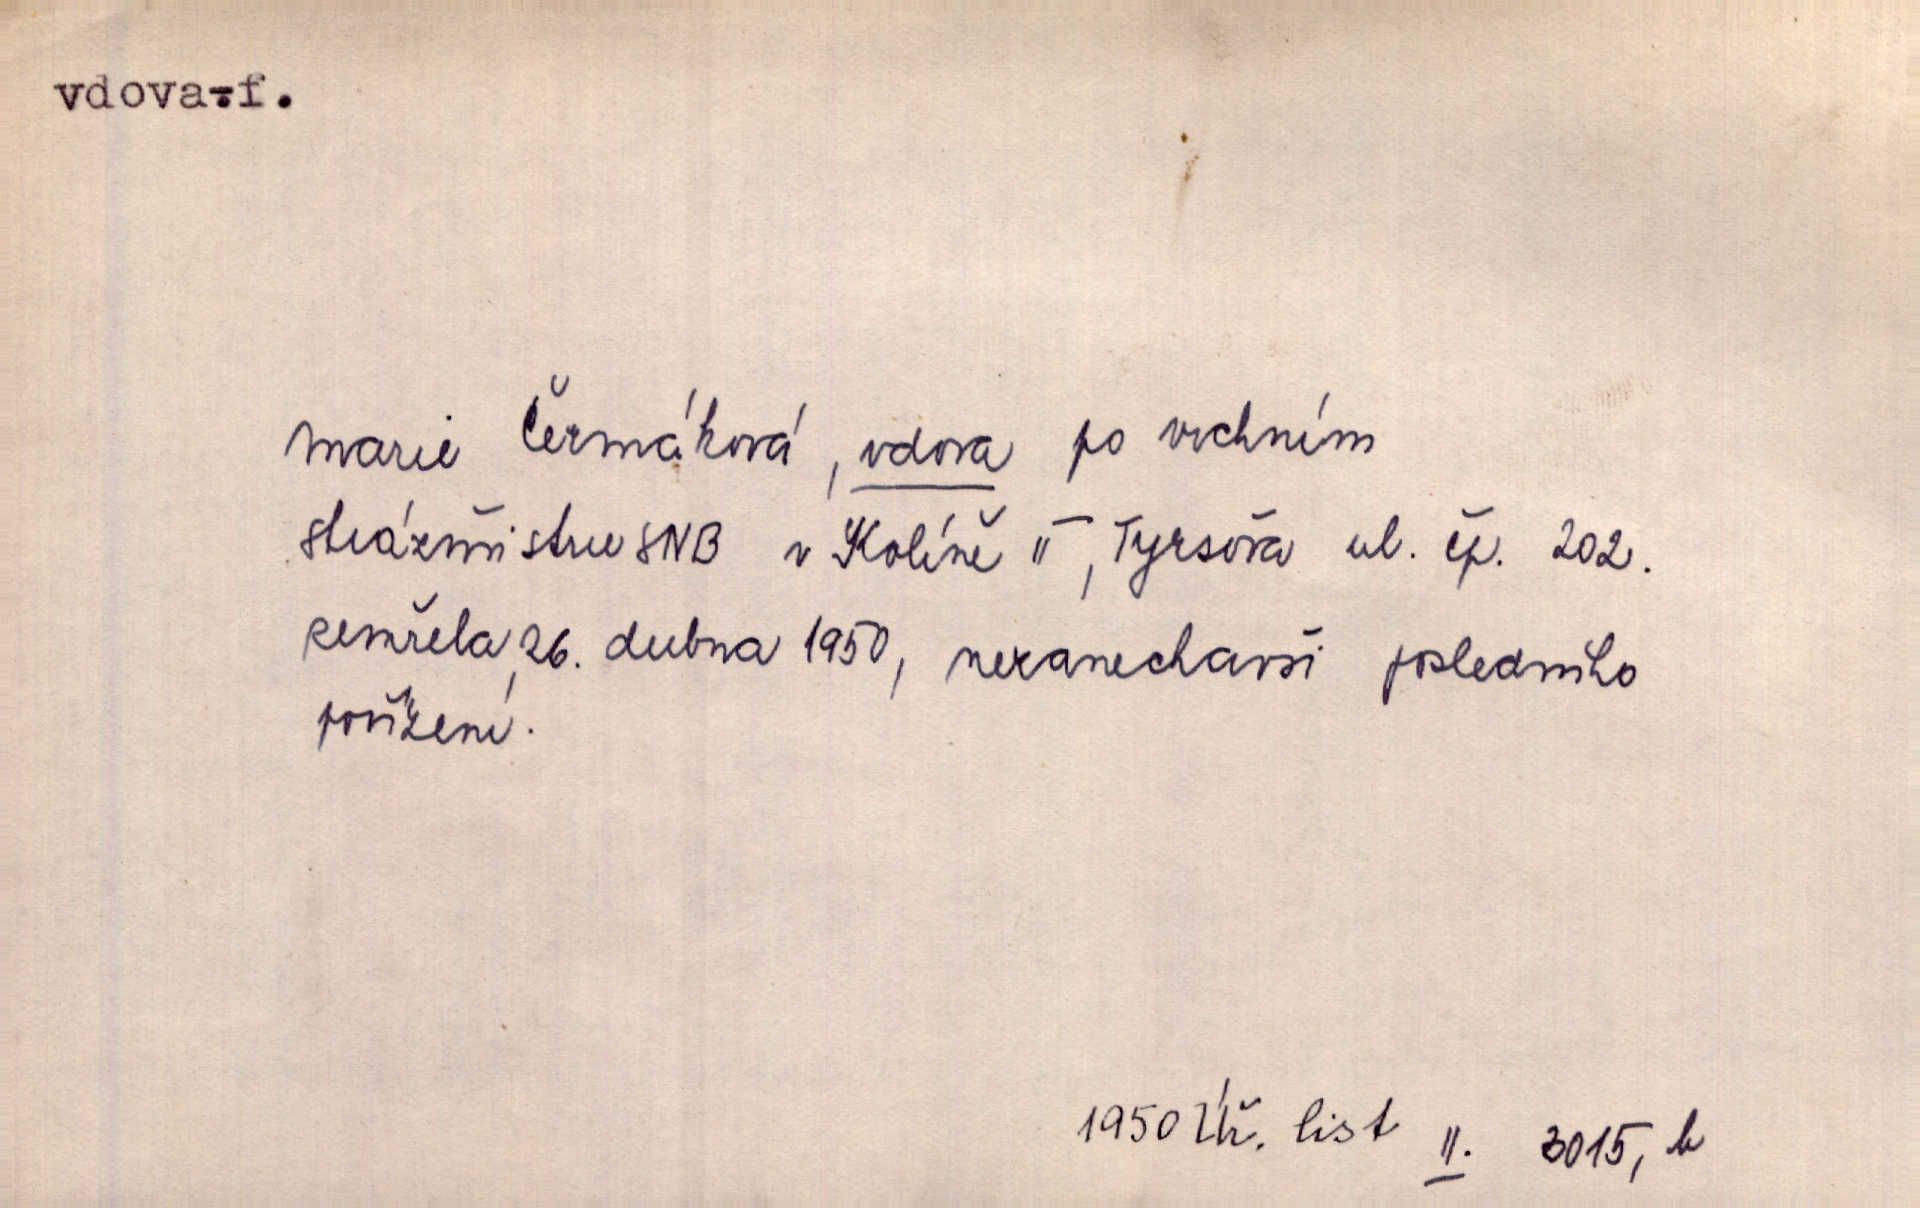 vdova-f.
Marie Čermáková, vdova po vrchním
strážmistru SNB v Kolíně II, Tyršova ul. čp. 202.
zemřela, 26. dubna 1950, nezanechavši posledního
pořízení.
1950 Úř. list II. 3015, b